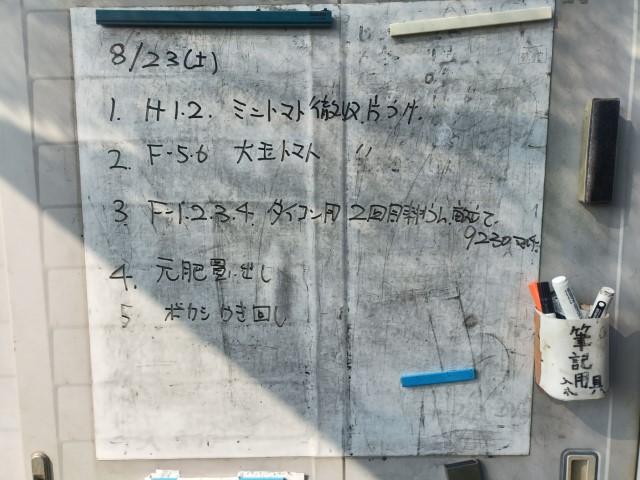 8/23(土)
1. H 1.2. ミニトマト 徹収 片づけ.
2. F-5.6 大玉トマト 〃
3. F-1.2.3.4. ダイコン用 2回目耕うん
4. 元肥 出し
5 ボカシ かき回し
筆
記
用具
入れ